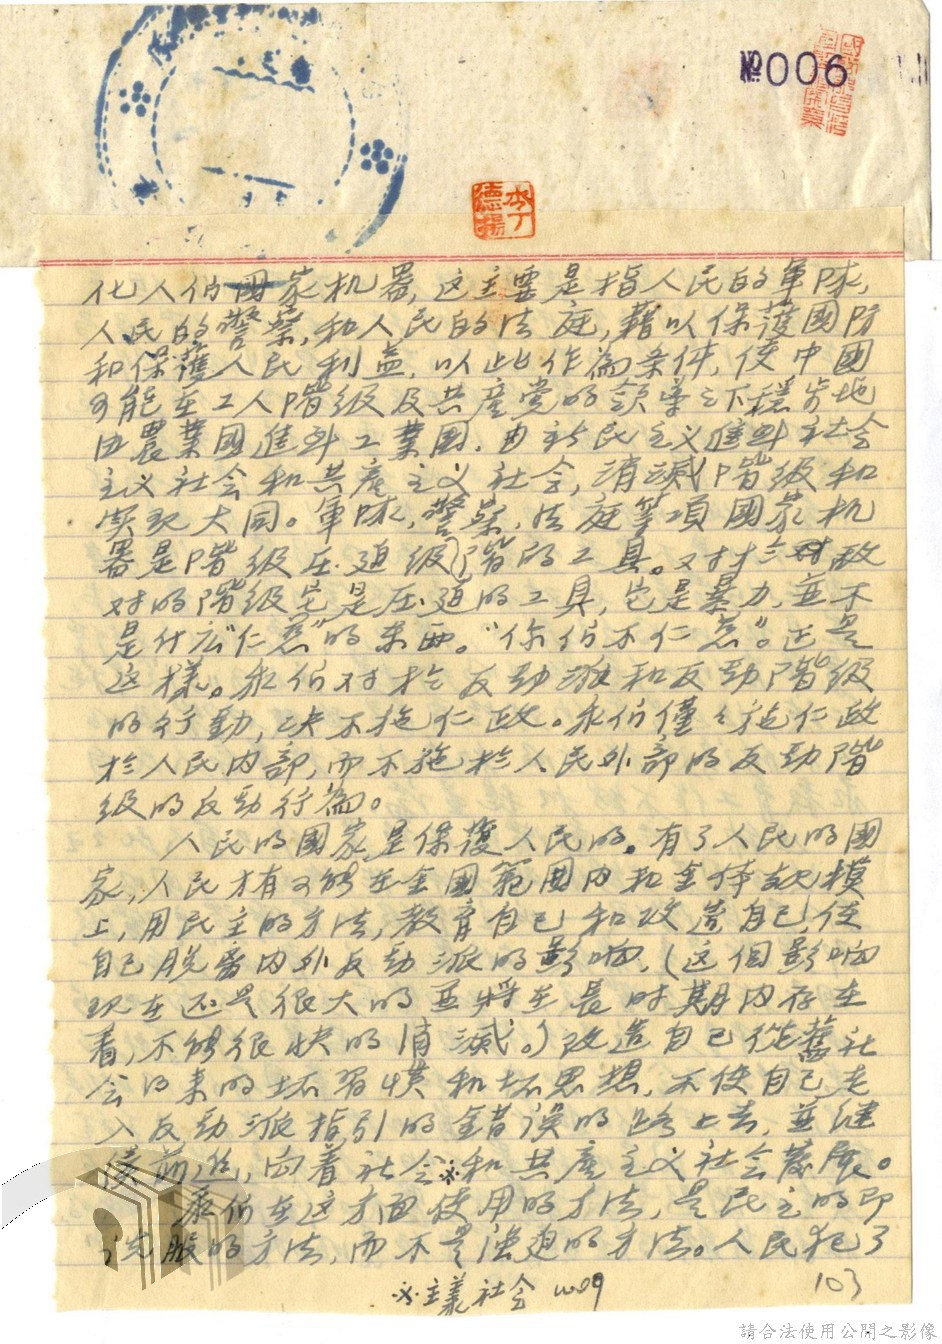 №006
李德揚
化人们國家机器,这主要是指人民的軍隊,
人民的警察,和人民的法庭,藉以保護國防
和保護人民利益,以此作為条件,使中國
可能在工人階級及共產党的領導之下穩步地
由農業國進到工業國,由新民主义進到社会
主义社会和共產主义社会,消滅階級和
实现大同。軍隊,警察,法庭等項國家机
器是階級压迫級階的工具。对於敌
对的階級它是压迫的工具,它是暴力,並不
是什么“仁慈”的东西。“你们不仁慈”。正是
这樣。我们对於反动派和反动階級
的行動,决不施仁政。我们僅々施仁政
於人民内部,而不施於人民外部的反动階
級的反动行為。
人民的國家是保護人民的。有了人民的國
家,人民才有可能在全國範囲内和全体規模
上,用民主的方法,教育自己和改造自己,使
自己脱离内外反动派的影响,(这個影响
现在还是很大的並將在長时期内存在
着,不能很快的消滅。)改造自己從舊社
会得来的坏習慣和坏思想,不使自己走
入反动派指引的錯误的路上去,並継
续前進,向着社会※和共產主义社会發展。
我们在这方面使用的方法,是民主的即
说服的方法,而不是强迫的方法。人民犯了
※主義社会
103
請合法使用公開之影像